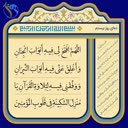 بسم الله الرحمن الرحیم
اللهم افتح لی فیه ابواب الجنان
و اغلق عنی فیه ابواب النیران
و وفقنی فیه لتلاوة القرآن یا
منزل السکینة فی قلوب المؤمنین